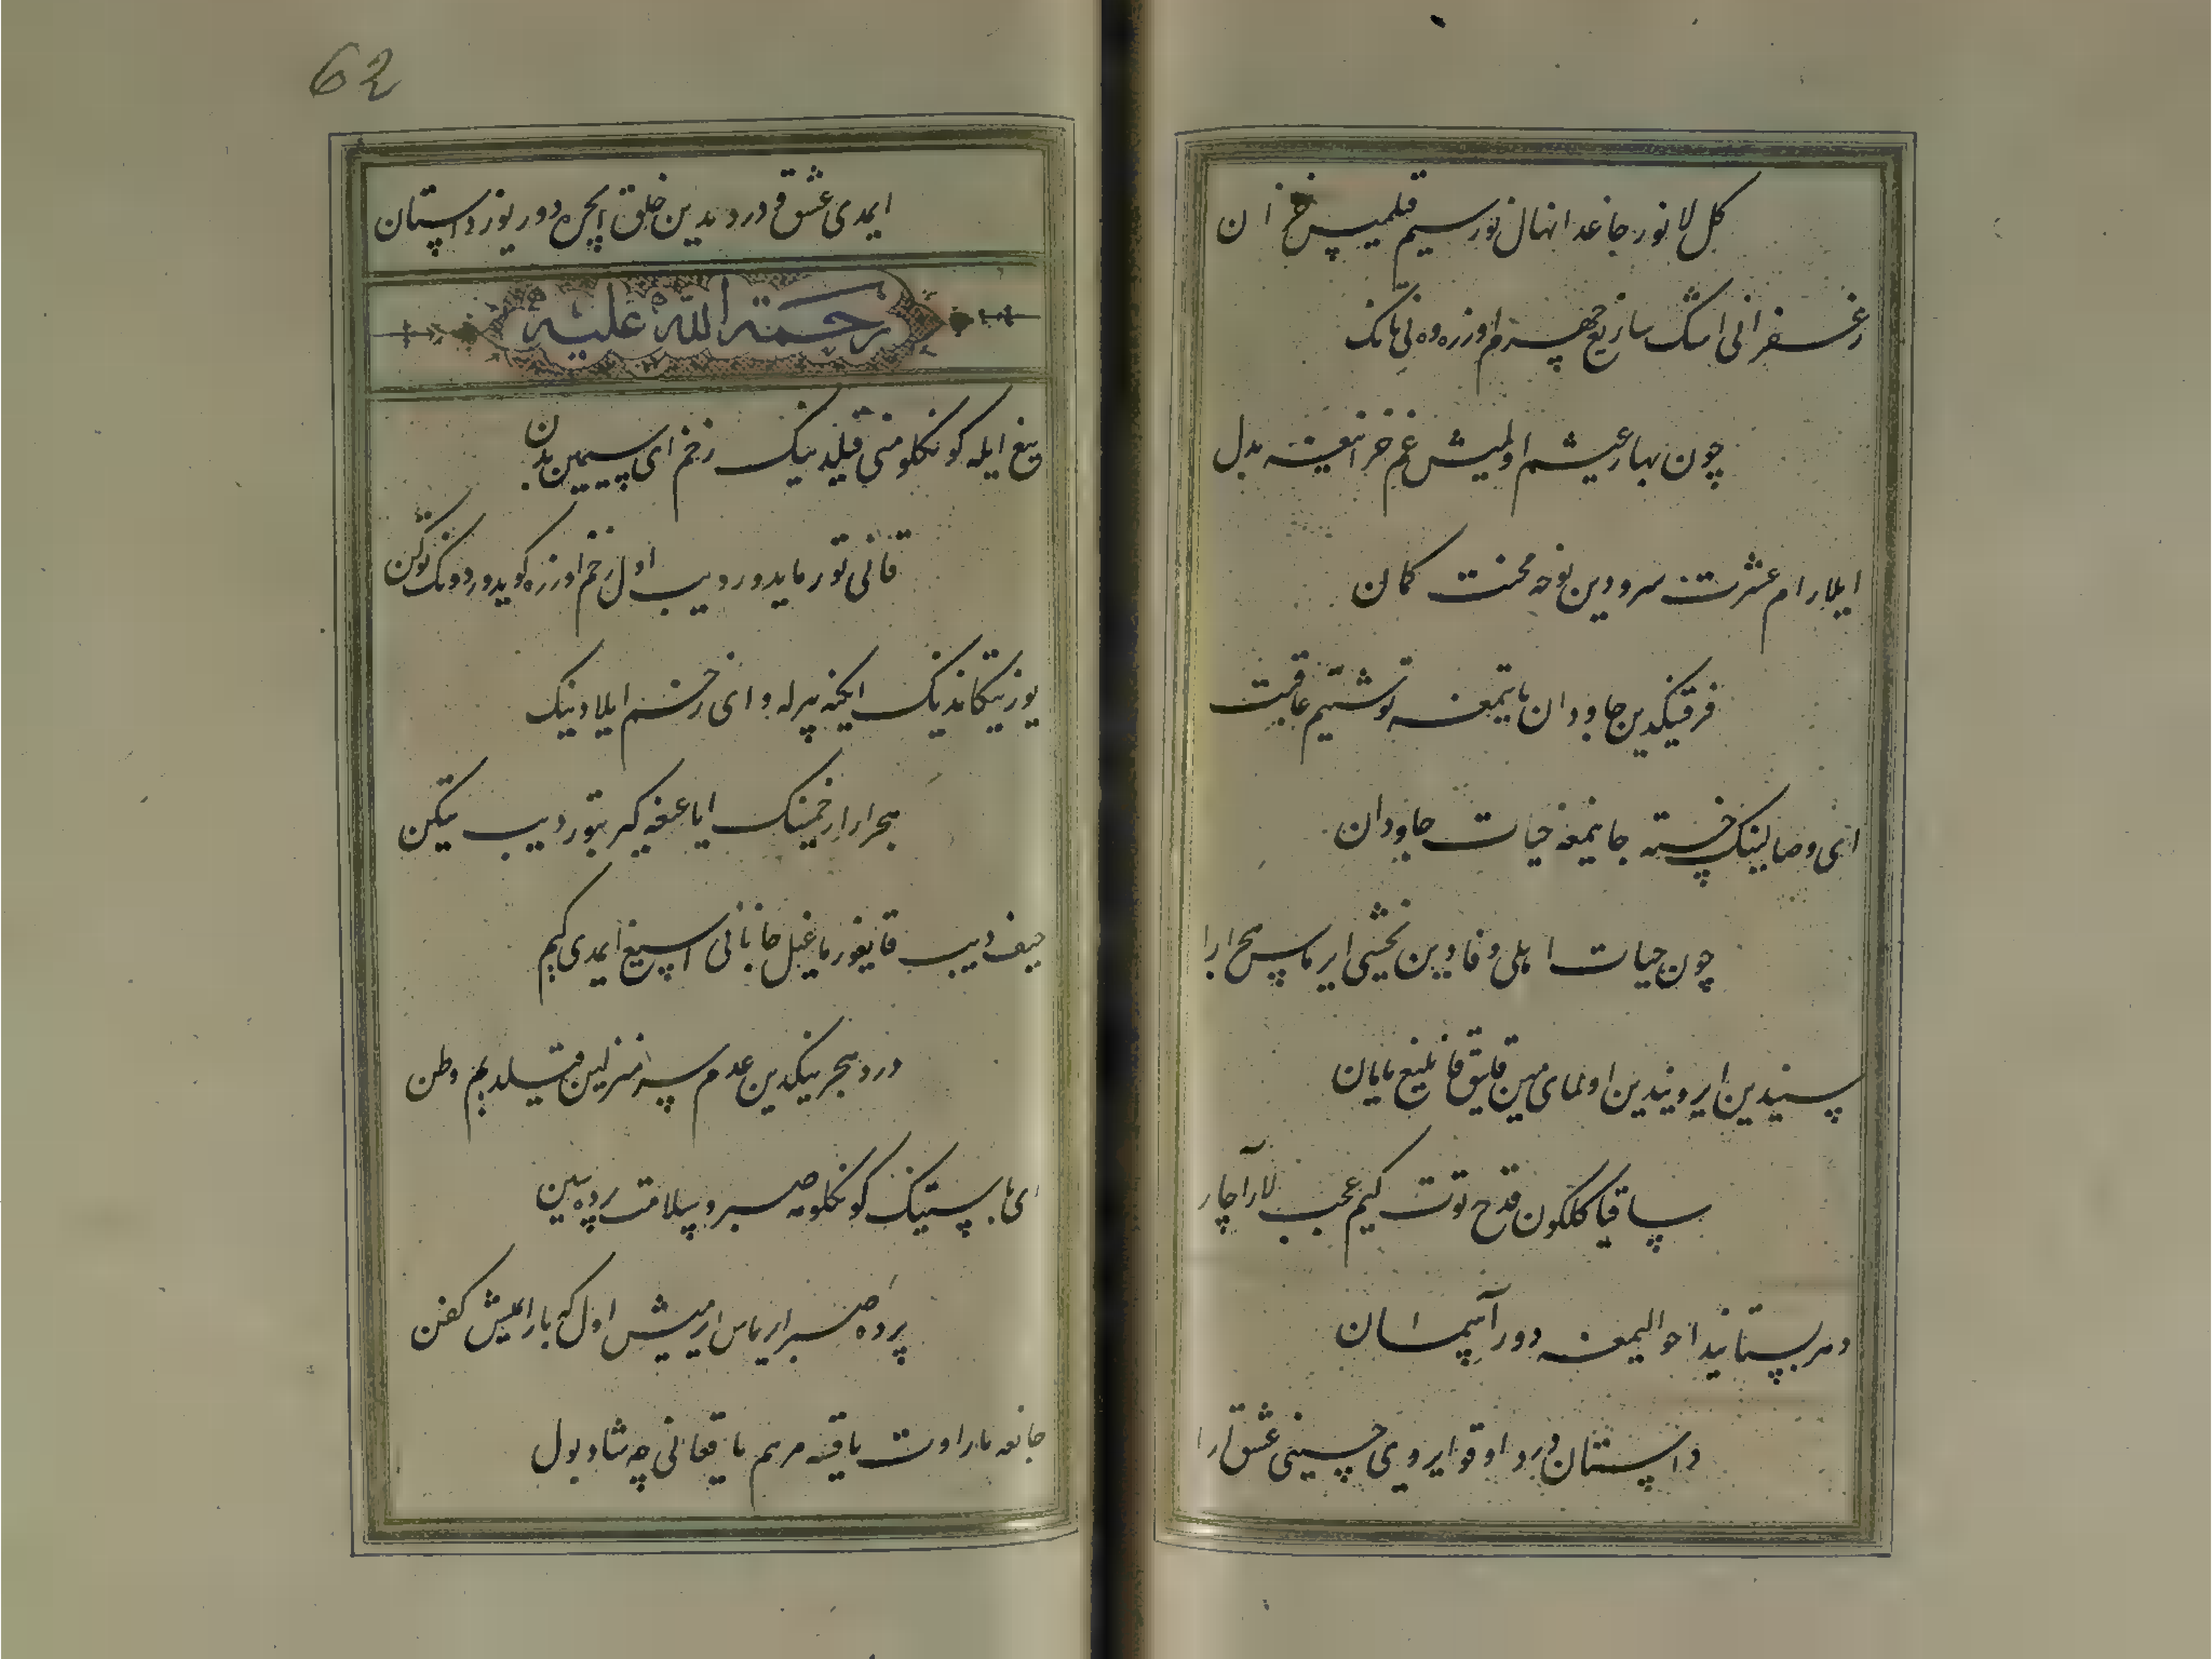 کل لا نور جاغدا نهال نورسیم قلمیس خزان
زعفرانی اشک ساریغ چهرهم اوزره وه نی یانک
چون بهار عیشم اولمیش غم خزانیغه بدل
ایلارام عشرت سرودین نوحه محنت کمان
فرقتینکدین جاودان یاتیمغه توشتیم عاقبت
ای وصالینک خسته جانیمغه حیات جاودان
چون حیات اهلی وفادین یخشی ایرماس هجر ارا
سیندین ایرو یندین اولمای مین قایتی قانلیغ یامان
ساقیا کلکون قدح توت کیم عجب لار آچار
دهر بستانیدا حوالیمغه دور آسمان
داستان درد اوقو ایردی حسینی عشق ارا
62
ایمدی عشق و درد یدین خلق ایچره دور یوز داستان
رحمة الله علیه
تیغ ایله کونکلومنی قیلدینک زخم ای سیمین بدن
قانی تورمایدور دیب اول زخم اوزره کویدوردونک توکن
یوز تیکاندینک ایکنه بیرله وای زخم ایلادینک
هجر ارا زخمینک ایاغیغه کیر بتور دیب تیکن
حیف دیب قایغورماغیل جانانی اسیغ ایمدی کیم
درد هجرینکدین عدم سر منزلین قیلدیم وطن
ای یاپستینک کونکلومه صبر و سلامت پرده سین
پرده صبر ایرماس ایرمیش اول که یارالمیش کفن
جانغه یارا اوت یاقسه مرهم یاقغانی چه شاد بول